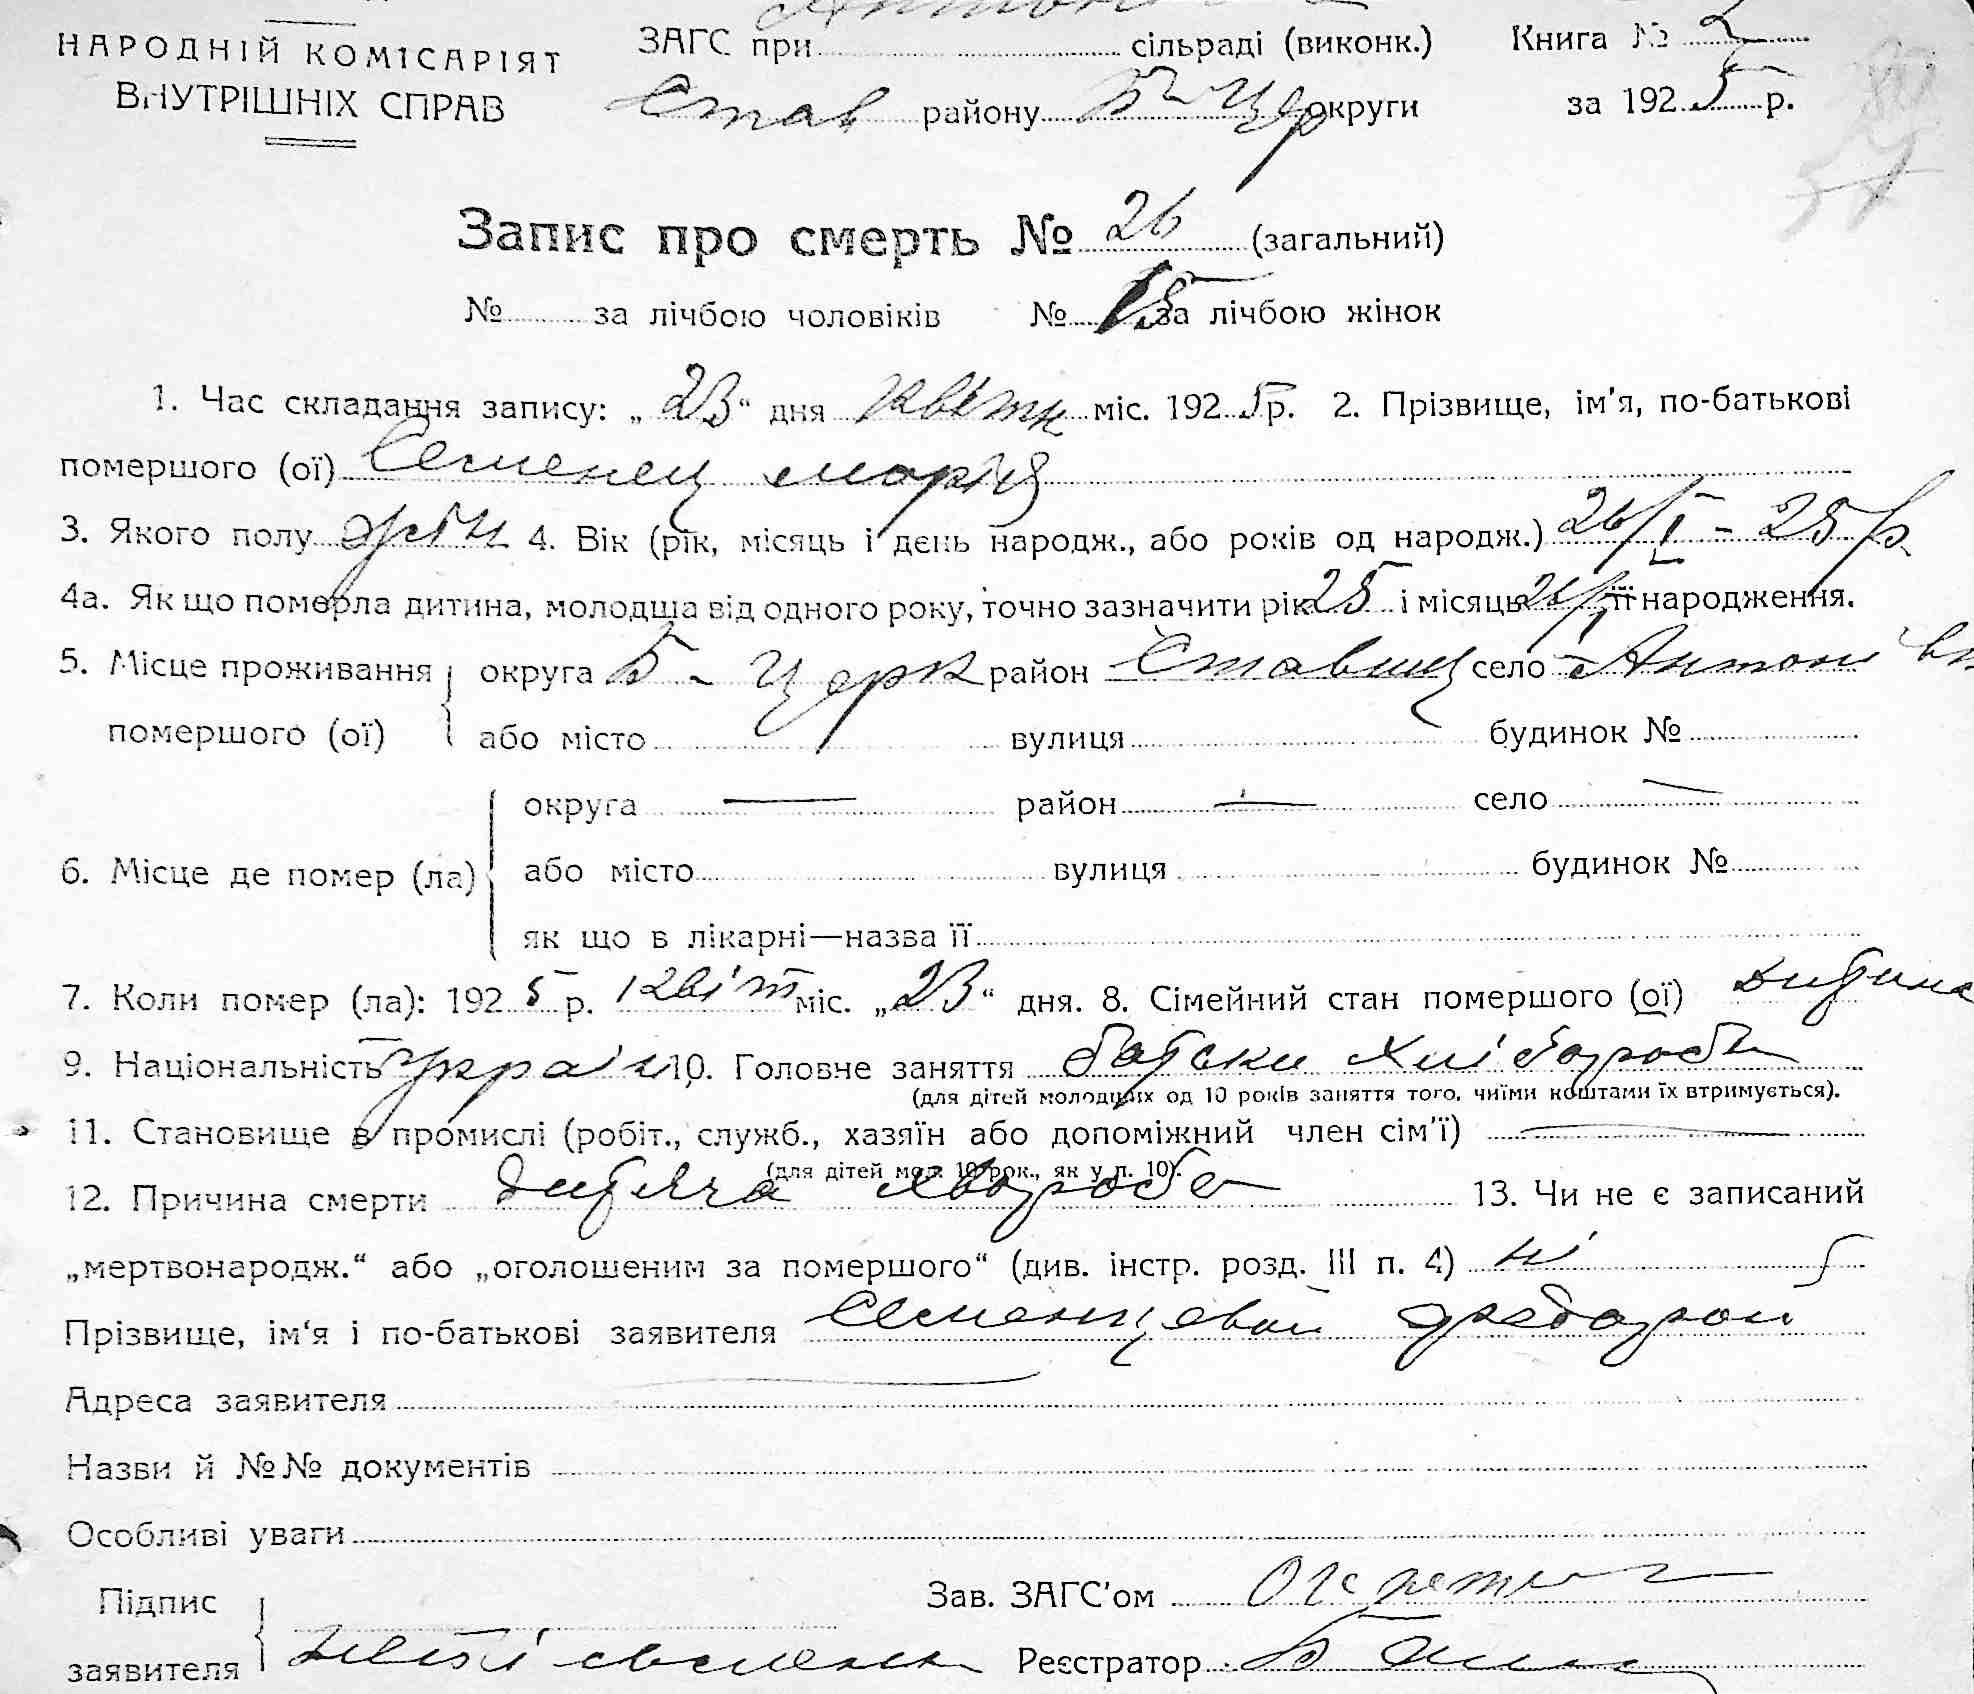 НАРОДНІЙ КОМІСАРІЯТ
ВНУТРІШНІХ СПРАВ
ЗАГС при сільраді (виконк.)
Став району Б-Цер округи
Книга № 2
за 1925 р.
Запис про смерть № 26 (загальний)
№ за лічбою чоловіків № 15 за лічбою жінок
1. Час складання запису: „23“ дня Квітн міс. 1925 р. 2. Прізвище, ім'я, по-батькові
помершого (ої) Семенец Марія
3. Якого полу жін 4. Вік (рік, місяць і день народж., або років од народж.) 26/I - 25 р.
4а. Як що померла дитина, молодша від одного року, точно зазначити рік 25 і місяць 26/I її народження.
5. Місце проживання округа Б-Церк район Ставищ село Антонівк
помершого (ої) або місто вулиця будинок №
округа — район — село —
6. Місце де помер (ла) або місто вулиця будинок №
як що в лікарні—назва її
7. Коли помер (ла): 1925 р. Квіт міс. „23“ дня. 8. Сімейний стан помершого (ої) дитина
9. Національність Украін 10. Головне заняття батьки Хлібороби
(для дітей молодших од 10 років заняття того, чиїми коштами їх втримується).
11. Становище в промислі (робіт., служб., хазяїн або допоміжний член сім'ї) —
(для дітей мол. 10 рок., як у п. 10).
12. Причина смерти дитяча хвороба 13. Чи не є записаний
„мертвонародж.“ або „оголошеним за помершого“ (див. інстр. розд. III п. 4) ні
Прізвище, ім'я і по-батькові заявителя Семенцевой Федорой
Адреса заявителя —
Назви й №№ документів
Особливі уваги
Підпис
заявителя
Зав. ЗАГС'ом
Реєстратор